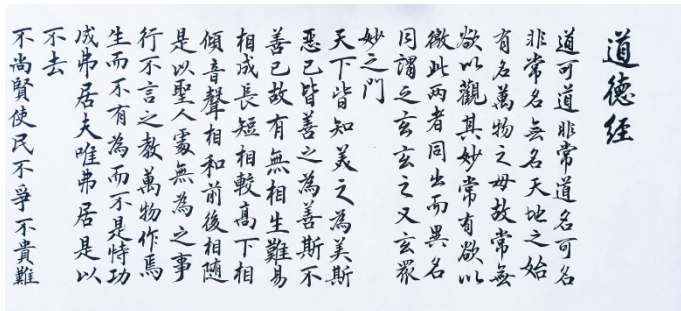 道德经
道可道非常道名可名
非常名無名天地之始
有名萬物之母故常無
欲以觀其妙常有欲以
徼此两者同出而異名
同謂之玄玄之又玄眾
妙之門
天下皆知美之為美斯
惡已皆善之為善斯不
善已故有無相生難易
相成長短相較高下相
傾音聲相和前後相隨
是以聖人處無為之事
行不言之教萬物作焉
生而不有為而不是恃功
成弗居夫唯弗居是以
不去
不尚賢使民不爭不貴難